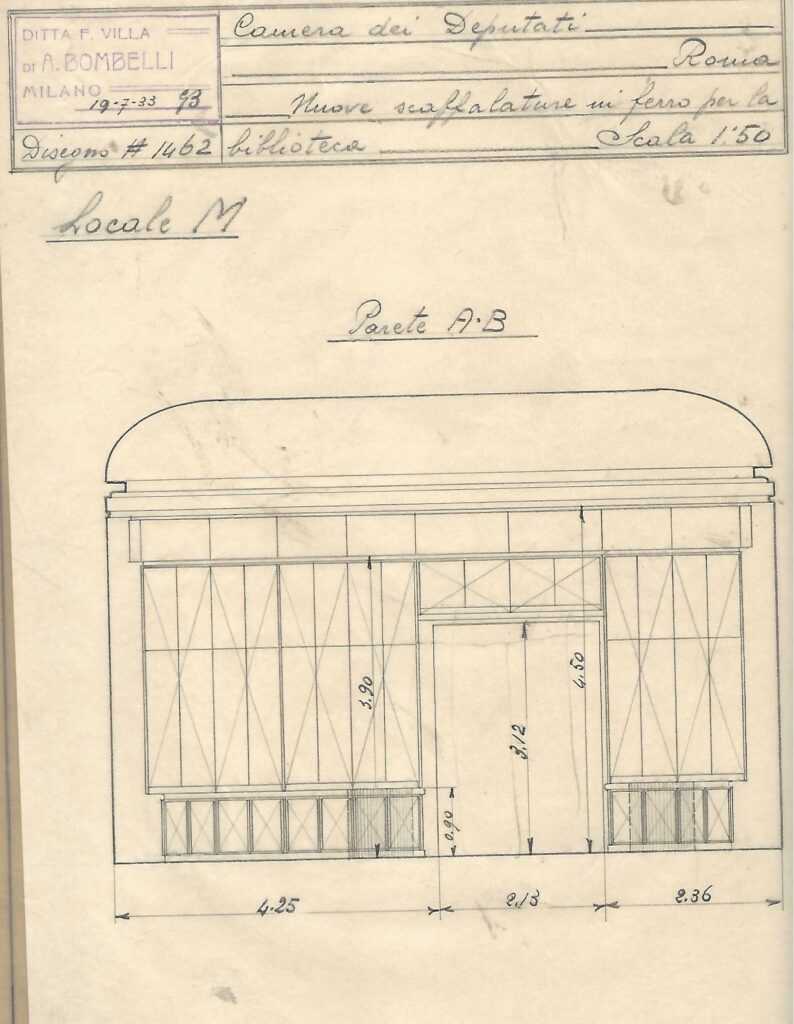 DITTA F. VILLA
DI A. BOMBELLI
MILANO
19-7-33
Disegno # 1462
Camera dei Deputati
Roma
Nuove scaffalature in ferro per la
biblioteca Scala 1:50
Locale M
Parete A-B
3.90
4.50
3.12
0.90
4.25
2.13
2.36